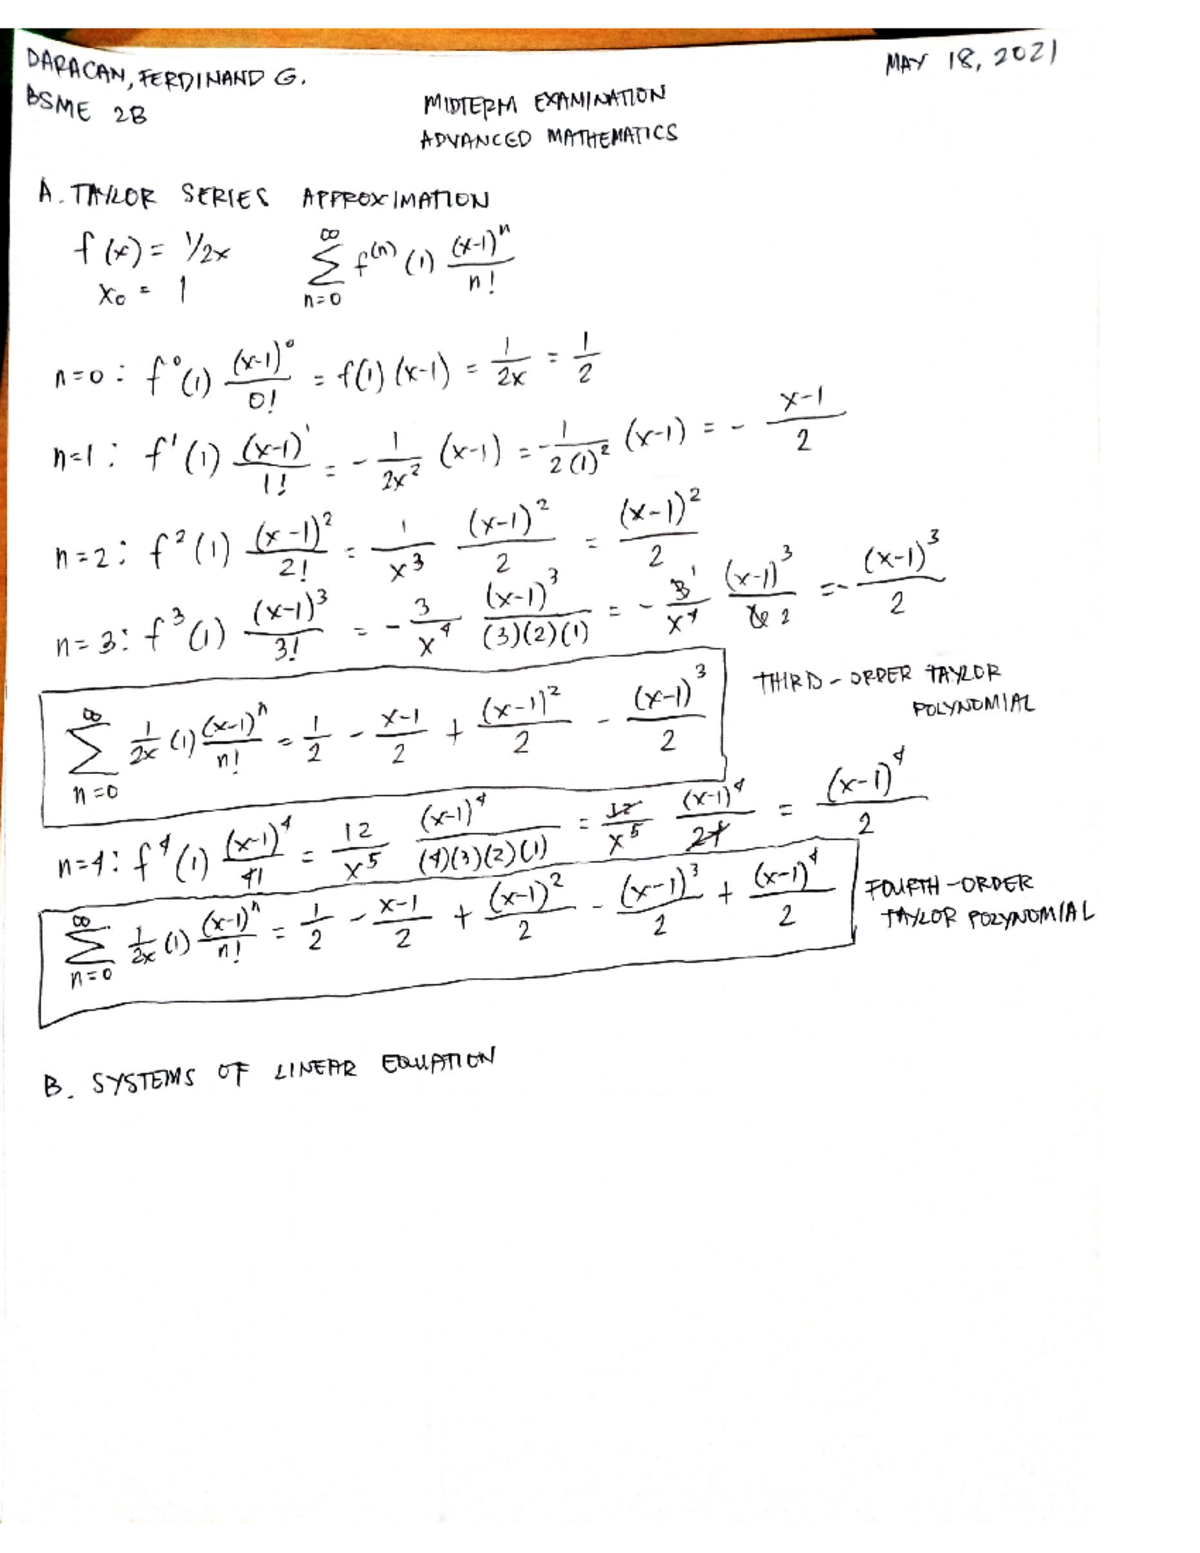 DARACAN, FERDINAND G.
MAY 18, 2021
BSME 2B
MIDTERM EXAMINATION
ADVANCED MATHEMATICS
A. TAYLOR SERIES APPROXIMATION
f(x) = 1/2x
x₀ = 1
∞ Σ n=0 f⁽ⁿ⁾(1) (x-1)ⁿ / n!
n=0: f⁰(1) (x-1)⁰ / 0! = f(1)(x-1) = 1/2x = 1/2
n=1: f'(1) (x-1)' / 1! = - 1/2x² (x-1) = - 1/2(1)² (x-1) = - x-1 / 2
n=2: f²(1) (x-1)² / 2! = 1/x³ (x-1)² / 2 = (x-1)² / 2
n=3: f³(1) (x-1)³ / 3! = - 3/x⁴ (x-1)³ / (3)(2)(1) = - 3 1/x⁴ (x-1)³ / 6 2 = - (x-1)³ / 2
∞ Σ n=0 1/2x (1) (x-1)ⁿ / n! = 1/2 - x-1 / 2 + (x-1)² / 2 - (x-1)³ / 2
THIRD-ORDER TAYLOR
POLYNOMIAL
n=4: f⁴(1) (x-1)⁴ / 4! = 12/x⁵ (x-1)⁴ / (4)(3)(2)(1) = 12/x⁵ (x-1)⁴ / 24 = (x-1)⁴ / 2
∞ Σ n=0 1/2x (1) (x-1)ⁿ / n! = 1/2 - x-1 / 2 + (x-1)² / 2 - (x-1)³ / 2 + (x-1)⁴ / 2
FOURTH-ORDER
TAYLOR POLYNOMIAL
B. SYSTEMS OF LINEAR EQUATION